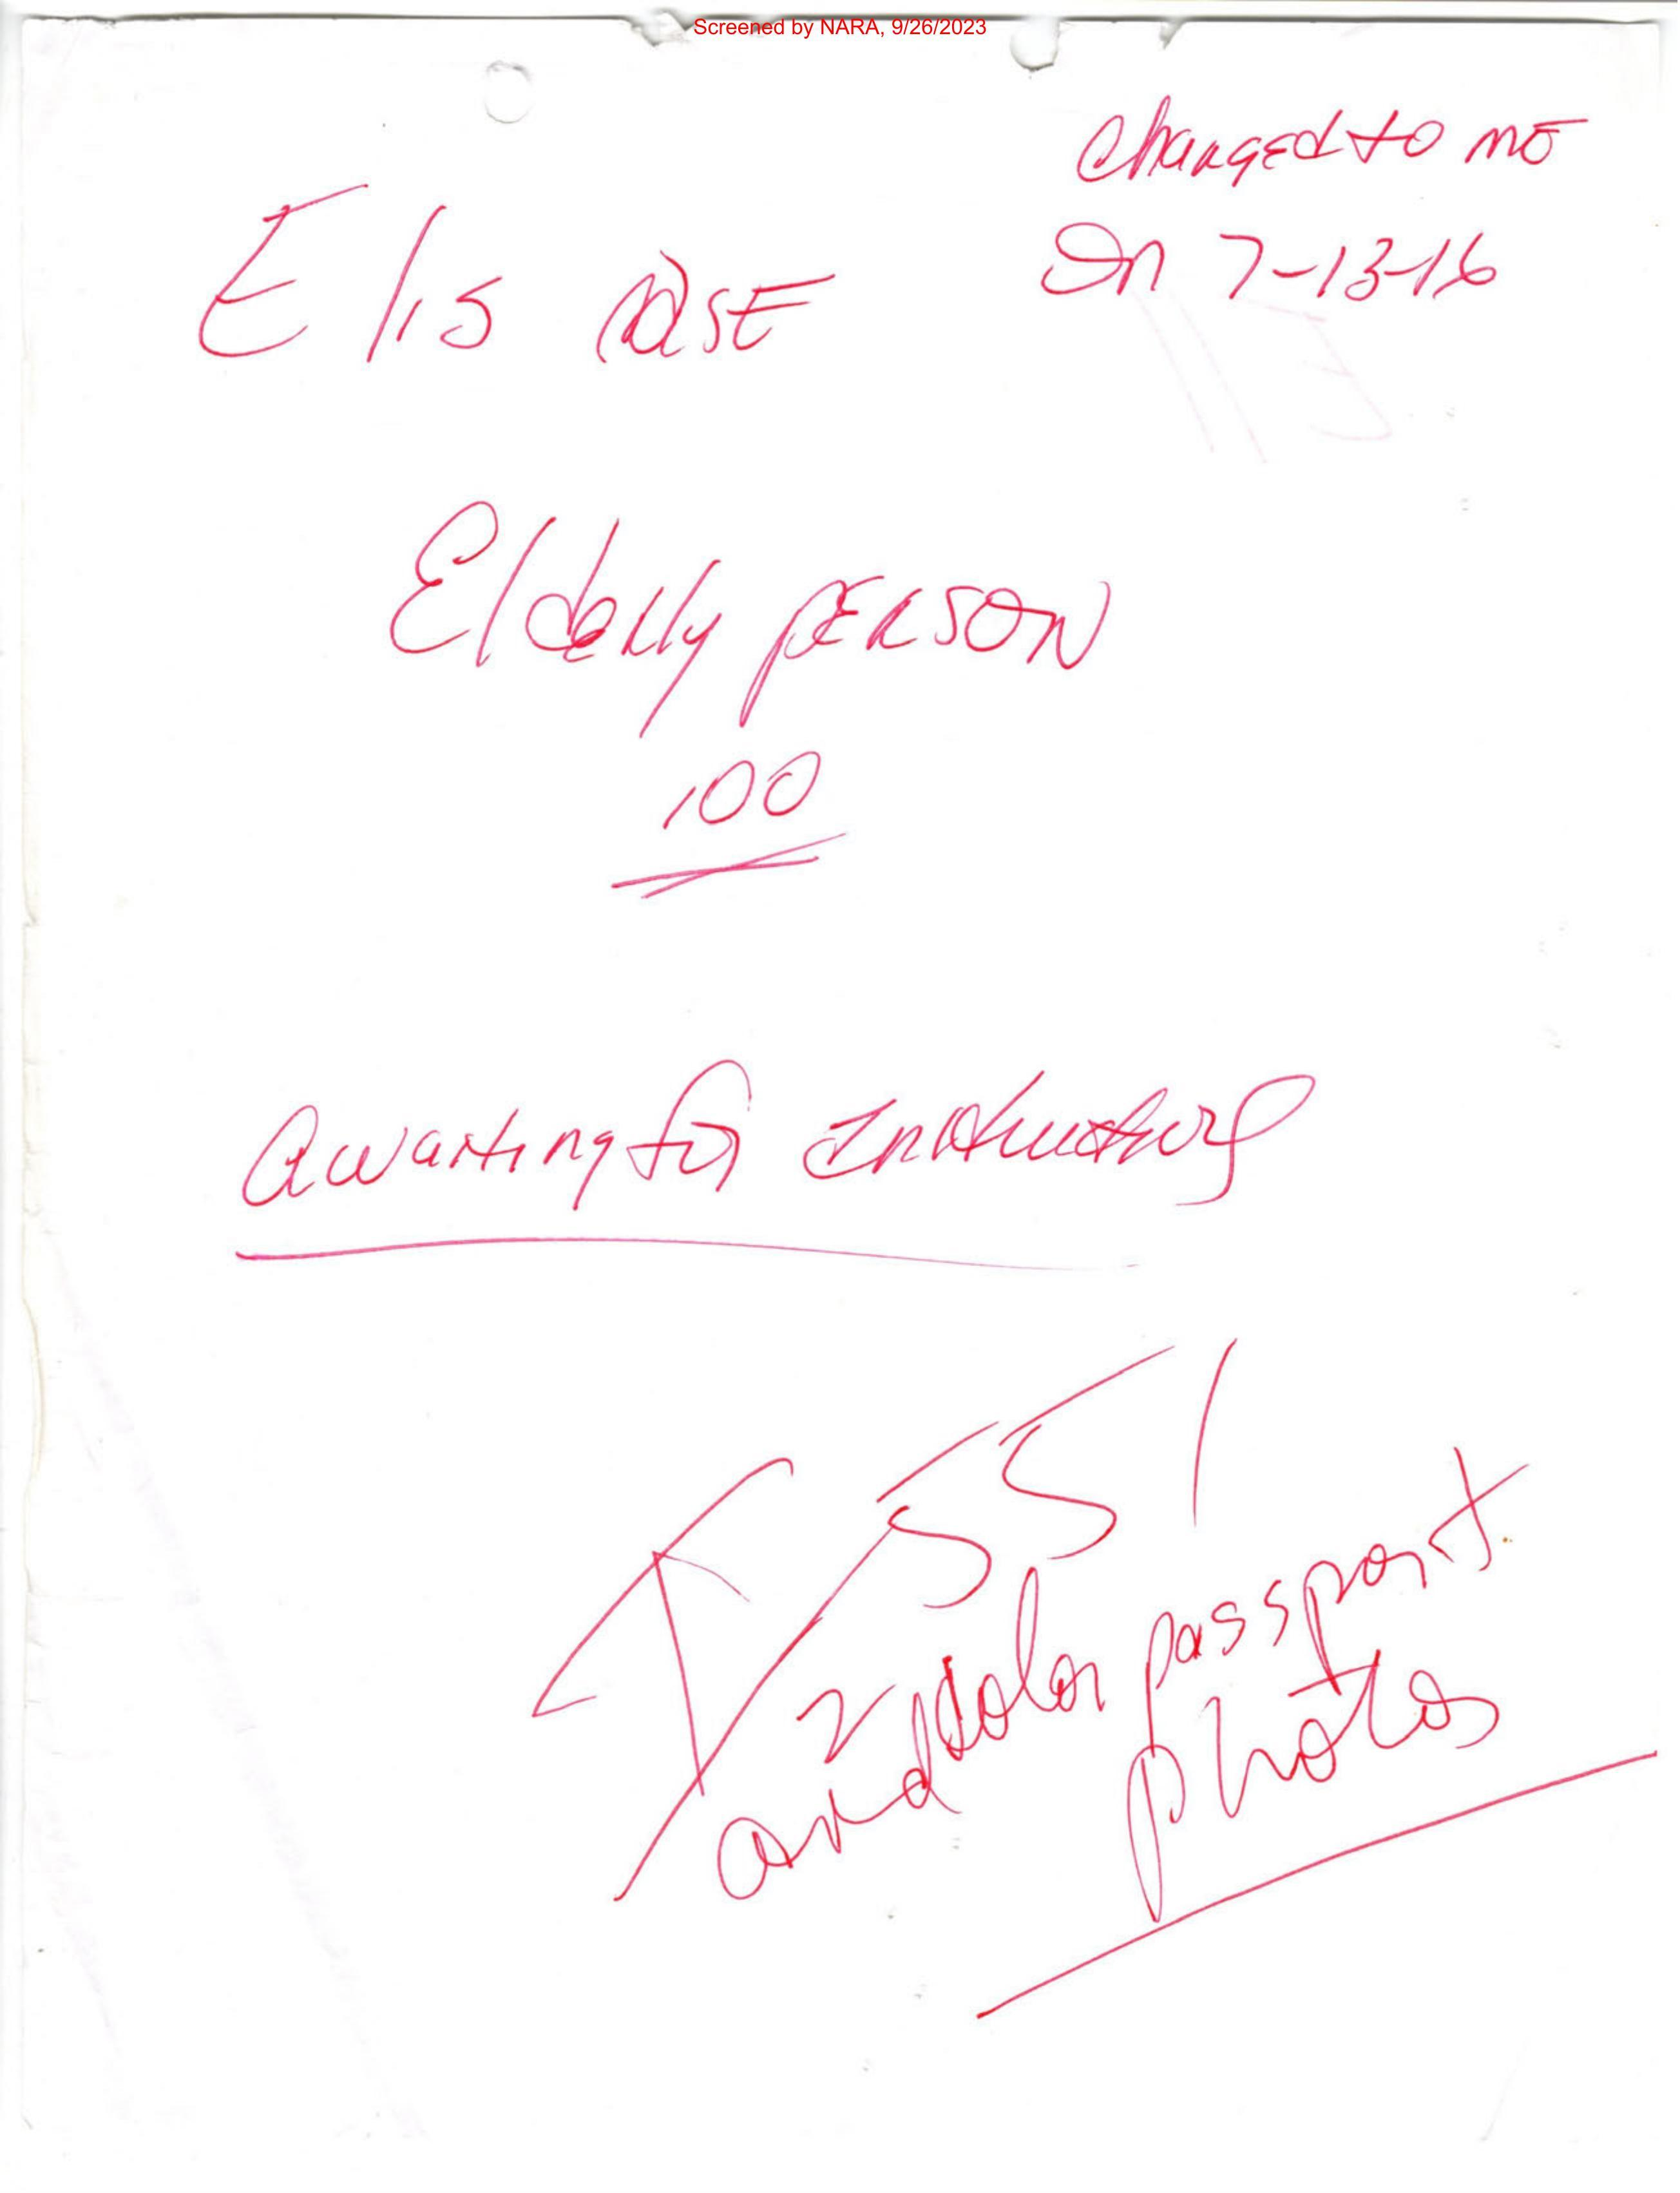 Screened by NARA, 9/26/2023
changed to me
On 7-13-16
E/is case
Elderly person
100
awaiting for
I/551
2 color passport
and photos